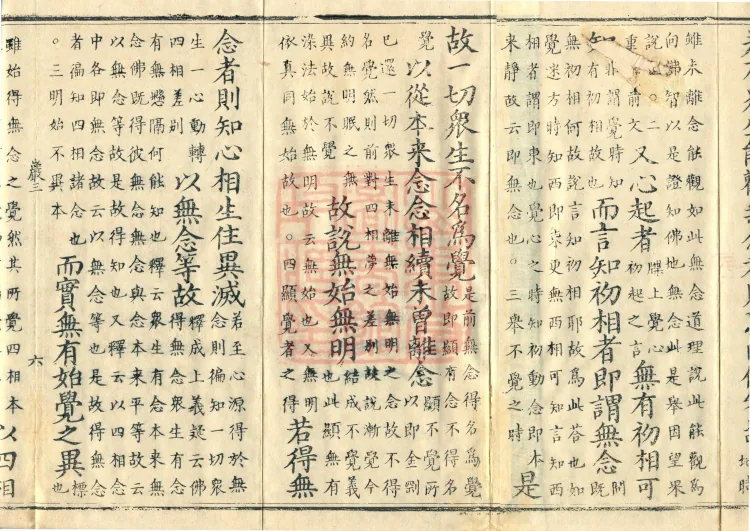 雖未離念能觀如此無念道理說此能觀為
向佛智以是證知佛地無念此是舉因望果
說也。二
前文
又心起者
牒上覺心
初起之言
無有初相可
知
非謂覺時知
有初相故也
而言知初相者即謂無念
問
既
無初相何故說言知初相耶故為此答也如
覺迷方時知西即東更無西相可知言知西
相者謂即東也覺心之時知初動念即本
來靜故云即無念也。三舉不覺之時
是
故一切眾生不名為覺
是前無念得名為覺
故即顯有念不得名
覺
以從本來念念相續未曾離念
顯不覺所
以即金剛
已還一切眾生未離無始無明之念故不得
名覺然則前對四相夢之差別故說漸覺今
約無明眠之無
異故說不覺
故說無始無明
結成不覺義
也此顯無有
染法始於無明故云無始也又無明
依真同無始故也。四顯覺者之得
若得無
念者則知心相生住異滅
若至心源得於無
念則徧知一切眾
生一心動轉
四相差別
以無念等故
釋成上義疑云佛
得無念眾生有念
有無懸隔何能知也釋云眾生有念本來無
念佛既得彼無念無念與念本來平等故云
以無念等故是故得知也又釋云以四相念
中各即無念故云以無念等也是故得無標
者徧知四相諸念也
。三明始不異本
而實無有始覺之異
也
巖三
六
雖始得無念之覺然其所覺四相本
以四相